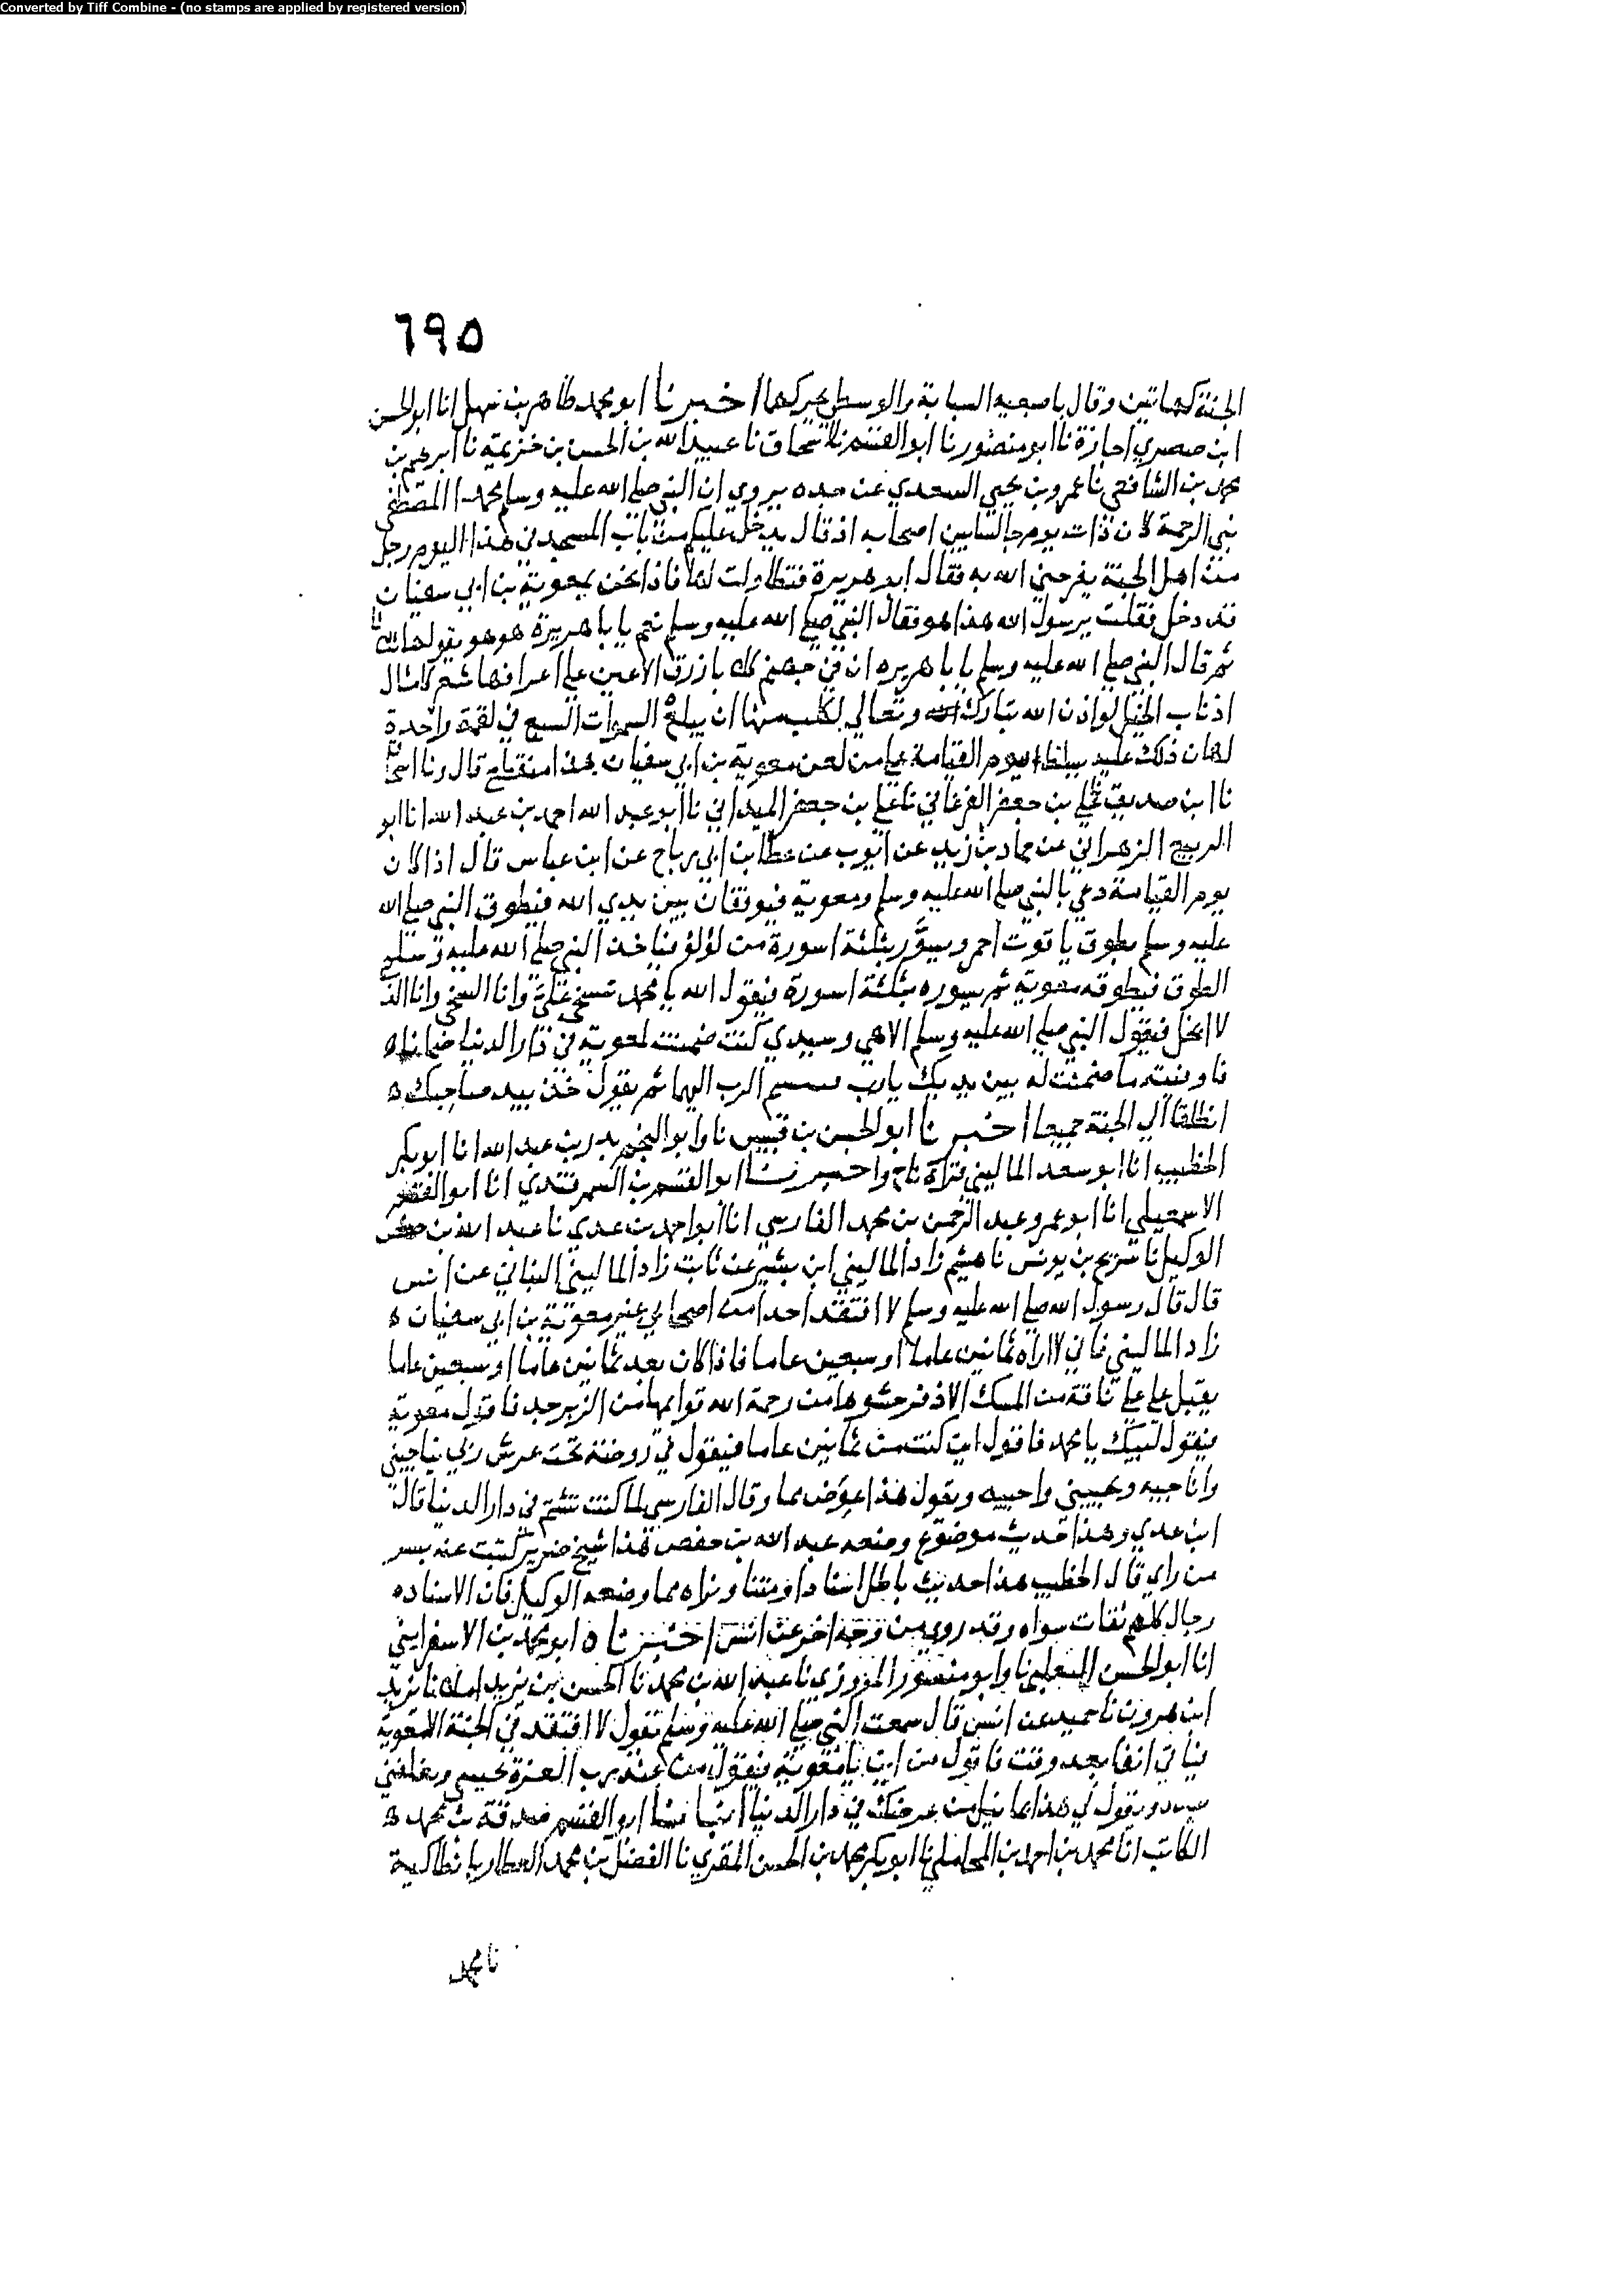 Converted by Tiff Combine - (no stamps are applied by registered version)
٦٩٥
الجنة كهاتين وقال باصبعيه السبابة والوسطى يحركها اخبرنا ابو محمد طاهر بن سهل انا ابو الحسن
ابن صصرى اجازة نا ابو منصور نا ابو القسم نا اسحاق نا عبيد الله بن الحسن بن خزيمة نا ابرهيم بن
محمد بن الشافعي نا عمرو بن يحيى السعدي عن جده يروي ان النبي صلى الله عليه وسلم محمدا المصطفى
نبي الرحمة كان ذات يوم جالسا بين اصحابه اذ قال يدخل عليكم من باب المسجد في هذا اليوم رجل
من اهل الجنة يفرحني الله به فقال ابو هريرة فتطاولت لها فاذا نحن بمعوية بن ابي سفيان
قد دخل فقلت يرسول الله هذا هو فقال النبي صلى الله عليه وسلم نعم يابا هريرة هو هو يقولها ثلثا
ثم قال النبي صلى الله عليه وسلم يابا هريره ان في جهنم كلابا زرق الاعين على اعرافها شعر كامثال
اذناب الخيل لو اذن الله تبارك وتعالى لكلب منها ان يبلع السموات السبع في لقمة واحدة
لهان ذلك عليه يسلط يوم القيامة على من لعن معوية بن ابي سفيان هذا منقطع قال ونا اسحاق
نا ابن صديق علي بن جعفر الفرغاني نا علي بن جعفر الميداني نا ابو عبد الله احمد بن عبد الله انا ابو
الربيع الزهراني عن حماد بن زيد عن ايوب عن عطا بن ابي رباح عن ابن عباس قال اذا كان
يوم القيامة دعي بالنبي صلى الله عليه وسلم ومعوية فيوقفان بين يدي الله فيطوق النبي صلى الله
عليه وسلم بطوق ياقوت احمر ويسور بثلثة اسورة من لؤلؤ فياخذ النبي صلى الله عليه وسلم
الطوق فيطوقه معوية ثم يسوره بثلثة اسورة فيقول الله يا محمد تتسخى علي وانا السخي وانا الذي
لا ابخل فيقول النبي صلى الله عليه وسلم الاهي وسيدي كنت ضمنت لمعوية في دار الدنيا ضمانا
فاوفيته ما ضمنت له بين يديك يارب فيبتسم الرب اليهما ثم يقول خذ بيد صاحبك
انطلقا الى الجنة جميعا اخبرنا ابو الحسن بن قبيس نا وابو النجم بدر بن عبد الله انا ابو بكر
الخطيب انا ابو سعد الماليني قراة ح واخبرنا ابو القسم بن السمرقندي انا ابو القسم
الاسمعيلي انا ابو عمرو عبد الرحمن بن محمد الفارسي انا ابو احمد بن عدي نا عبد الله بن حفص
الوكيل نا سريج بن يونس نا هشيم زاد الماليني ابن بشير عن ثابت زاد الماليني البناني عن انس
قال قال رسول الله صلى الله عليه وسلم لا افتقد احدا من اصحابي غير معوية بن ابي سفيان
زاد الماليني فاني لا اراه ثمانين عاما او سبعين عاما فاذا كان بعد ثمانين عاما او سبعين عاما
يقبل علي على ناقة من المسك الاذفر حشوها من رحمة الله قوايمها من الزبرجد فاقول معوية
فيقول لبيك يا محمد فاقول اين كنت من ثمانين عاما فيقول في روضة تحت عرش ربي يناجيني
واناجيه ويحييني واحييه ويقول هذا عوض مما وقال الفارسي لما كنت تشتم في دار الدنيا قال
ابن عدي وهذا حديث موضوع وضعه عبد الله بن حفص هذا شيخ ضرير كتبت عنه بسر
من راى قال الخطيب هذا حديث باطل اسنادا ومتنا ونراه مما وضعه الوكيل فان الاسناد
رجال كلهم ثقات سواه وقد روي من وجه اخر عن انس اخبرناه ابو محمد بن الاسفرايني
انا ابو الحسن الثعلبي نا وابو منصور المروزي نا عبد الله بن محمد نا الحسن بن يزيد املاء نا يزيد
ابن هرون نا حميد عن انس قال سمعت النبي صلى الله عليه وسلم يقول لا افتقد في الجنة الا معوية
فياتي انفا بعد وقت فاقول من اين يا معوية فيقول من عند رب العزة يحييني ويغلفني
بيده ويقول لي هذا بما نيل من عرضك في دار الدنيا انبانا ابو القسم صدقة بن محمد
الكاتب انا محمد بن احمد بن المحاملي نا ابو بكر محمد بن الحسن المقري نا الفضل بن محمد العطار بانطاكية
نا محمد